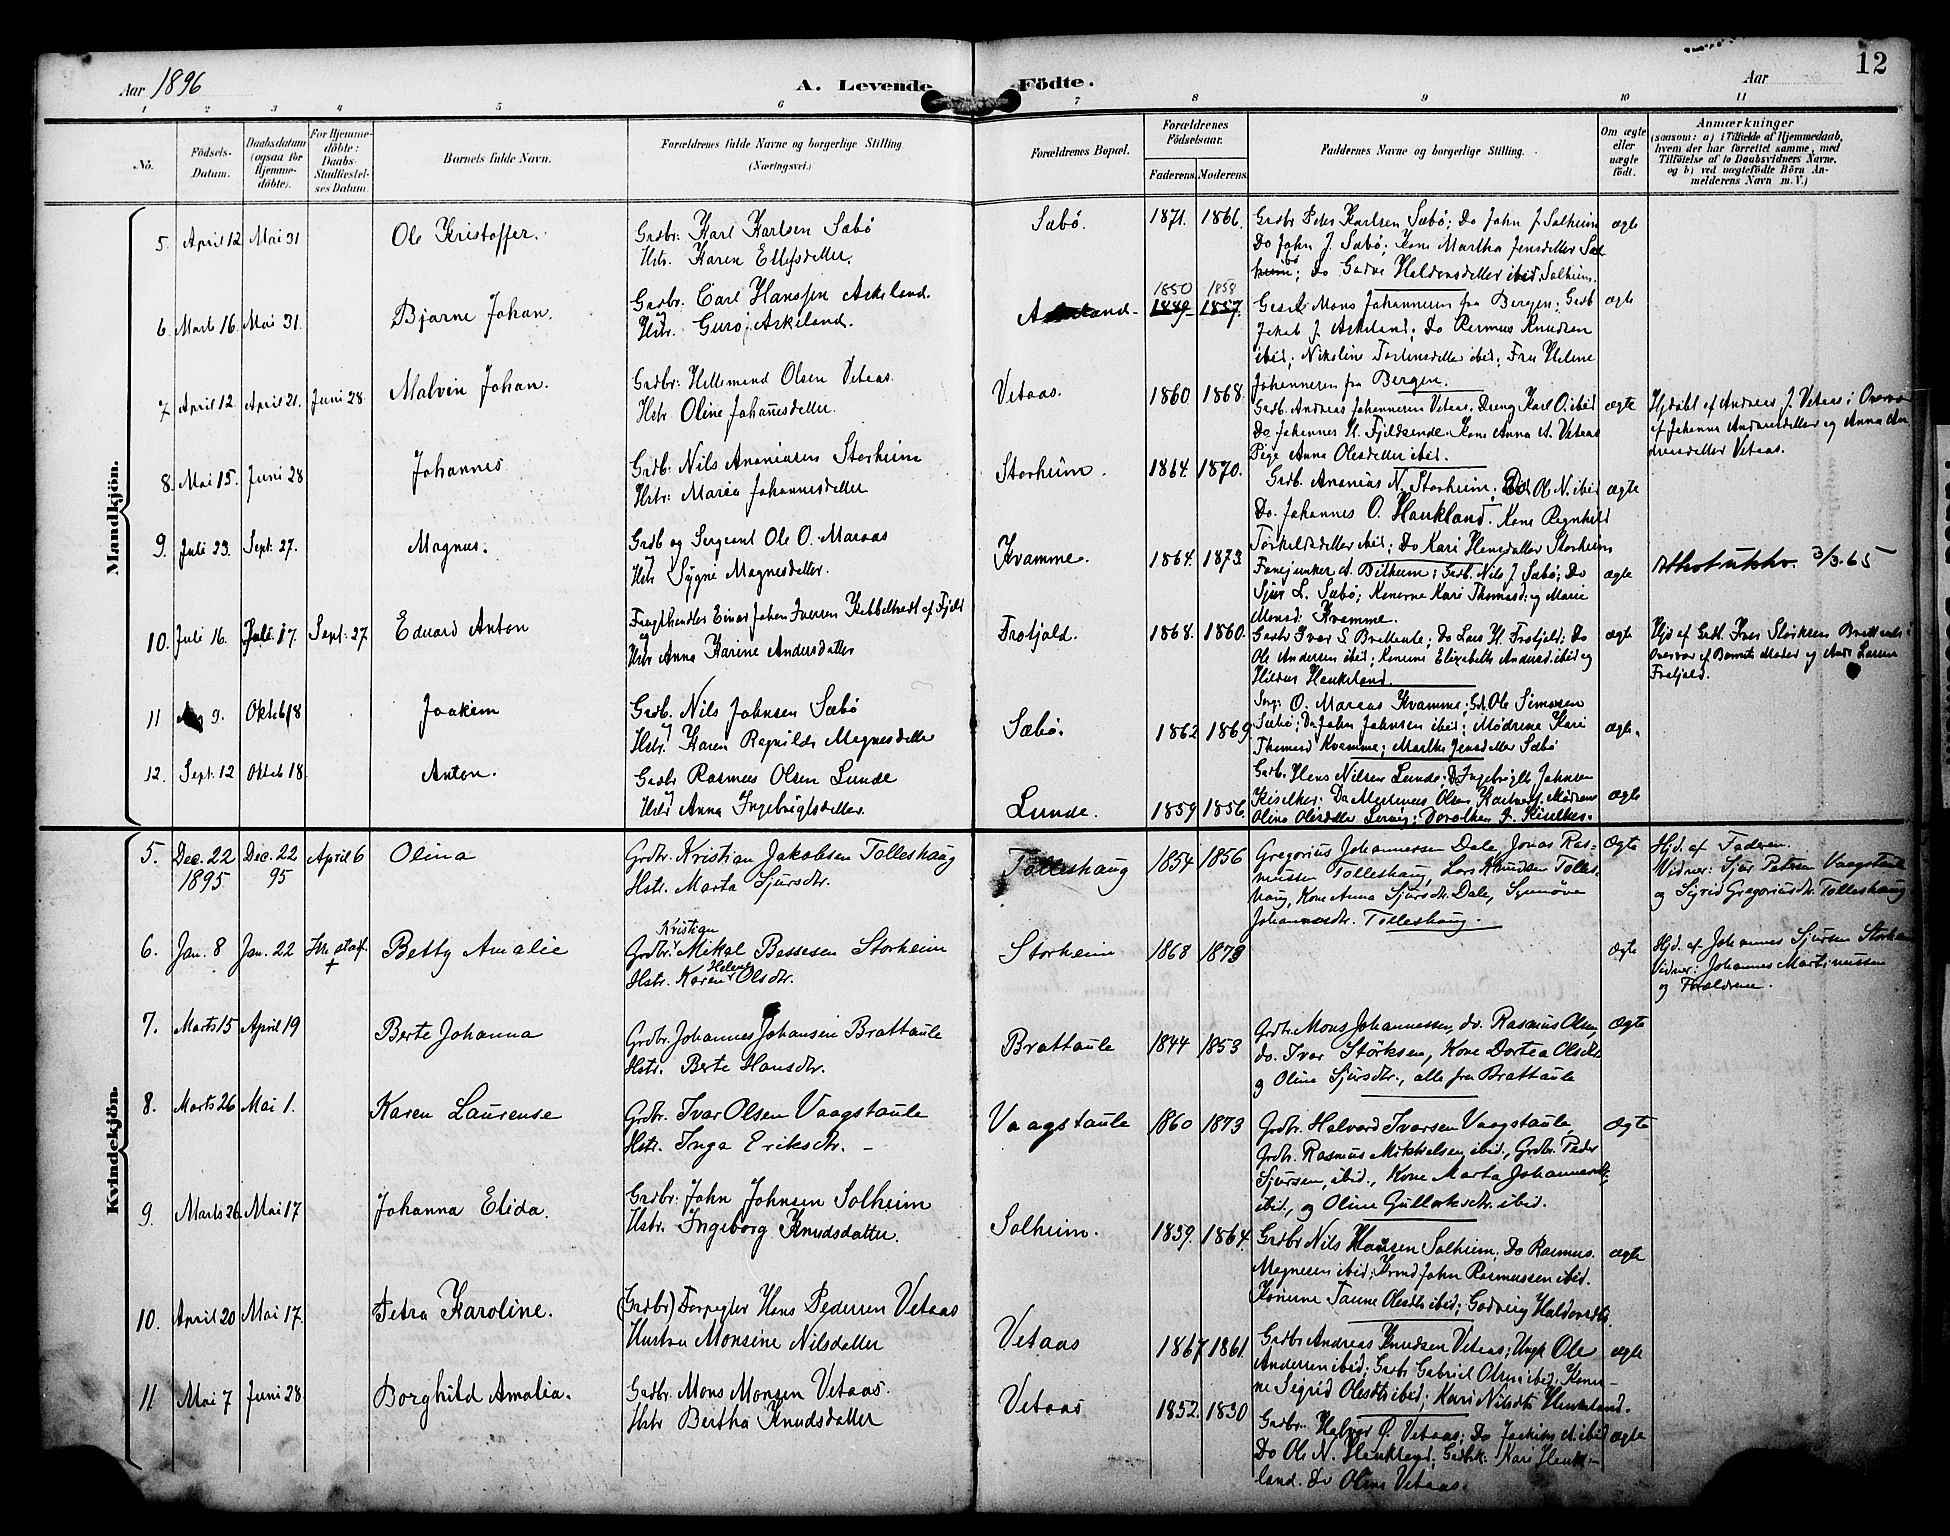 Aar 1896
A. Levende Födte.
Aar
12
1 2 3 4 5 6 7 8 9 10 11
No.
Födsels-Datum.
Daabsdatum (ogsaa for Hjemme-döbte).
For Hjemme-döbte: Daabs-Stadfæstel-ses Datum.
Barnets fulde Navn.
Forældrenes fulde Navne og borgerlige Stilling (Næringsvei.)
Forældrenes Bopæl.
Forældrenes Födselsaar.
Faderens. Moderens.
Faddernes Navne og borgerlige Stilling.
Om ægte eller uægte födt.
Anmærkninger
(saasom: a) i Tilfælde af Hjemmedaab, hvem der har forrettet samme, med Tilföielse af to Daabsvidners Navne, og b) ved uægtefödte Börn An-melderens Navn m. V.)
Mandkjön.
5. April 12 Mai 31 Ole Kristoffer. Grdbr. Karl Karlsen Sæbö
Hstr. Karen Ellefsdatter. Sæbö. 1871. 1866. ægte
Grdbr Peder Karlsen Sæbö; Do John J. Solheim
Do John J. Sæbö; Kone Martha Jensdatter
6. Marts 16 Mai 31. Bjarne Johan. Grdbr. Carl Hanssen Askeland.
Hstr. Guro Askeland. 1850 1858 ægte
Mons Johannesen fra Bergen; Grdb
Jakob J. Askeland; Do Rasmus Knudsen
ibid; Nikoline ibid; Helene
Johannesen fra Bergen.
7. April 12. April 21. Juni 28. Malvin Johan. Grdbr: Hellemand Olsen Vetaas
Hstr Oline Johannesdatter. Vetaas. 1860 1868. ægte
Grdb. Andreas Johannesen Vetaas, Dreng Karl O. ibid
Do Johannes H. Fjeldsende. Kone Anna A. Vetaas
Pige Anna Olesdatter ibid.
Hjdöbt af Andreas J. Vetaas i Overvær
af Johanna Andreasdatter og Anna An
dreasdatter Vetaas.
8. Mai 15. Juni 28 Johannes Grdb: Nils Ananiasen Storheim
Hstr: Maria Johannesdatter Storheim. 1864. 1870. ægte
Grdb. Ananias N. Storheim; Do Ole N. ibid
Do. Johannes O. Haukland. Kone Ragnhild
Torkelsdatter ibid; Do Kari Hansdatter Storheim
9. Juli 23. Sept: 27. Magnus. Grdb og Sergeant Ole O. Maraas
Hstr Sygni Magnesdatter. Kvamme. 1864. 1873 ægte
Fanejunker A. Bilheim; Grdb. Nils J. Sæbö; Do
Sjur L. Sæbö; Konerne Kari Thomasd; og Marie
Monsd: Kvamme.
3/3.65
10. Juli 16. Juli 17. Sept: 27 Eduard Anton
Hstr Anna Karine Andersdatter Froijold. 1868. 1860. ægte
Grdbr Ivar S. Brattaule; Do Lars H. Froijold; Do
Ole Andersen ibid; Konerne Elizabeth Andersd. ibid og
Hildur Haukeland.
Hjd af Grdb. Iver Storksen Brattaule i
Overvær af Barnets Moder og Anders Larsen
Froijold.
11 9. Oktob 18 Joakim Grdb. Nils Johnsen Sæbö
Hstr. Karen Ragnilde Magnesdatter Sæbö. 1862 1869. ægte.
Serg: O. Maraas Kvamme; Gd. Ole Simonsen
Sæbö; Do John Johnsen ibid; Mödrene Kari
Thomasd Kvamme; Martha Jensdatter Sæbö
12. Sept: 12 Oktob 18. Anton. Grdbr Rasmus Olsen Lunde
Hstr Anna Ingebrigtsdatter. Lunde. 1859 1856. ægte
Grdb. Hans Nilsen Lunde; Do Ingebrigt Johnsen
Kvindekjön.
5. Dec. 22 1895. Dec. 22 95 April 6 Olina Grdbr. Kristian Jakobsen Tolleshaug
Hstr. Marta Sjursdtr. Tolleshaug 1854 1856 Ægte
Gregorius Johannessen Dale, Jonas Ras-
mussen Tolleshaug, Lars Knudsen Tolles-
haug, Kone Anna Sjursdtr. Dale, Synnöve
Johannesdtr. Tolleshaug.
Hjd. af Faderen.
Vidner: Sjur Petersen Vaagstaule
og Sigrid Gregoriusdtr. Tolleshaug
6. Jan. 8 Jan. 22 In. staf. † Betty Amalie
Kristian
Grdbr. Mikal Bessesen Storheim
Helene
Hstr. Karen Olsdtr. Storheim 1868 1873 Ægte
Hjd. af Johannes Sjursen Storheim
Vidner: Johannes Martinussen
og Forældrene.
7. Marts 15 April 19 Berte Johanna Grdbr. Johannes Johansen Brattaule
Hstr. Berte Hansdtr. Brattaule 1844 1853 Ægte
Grdbr. Mons Johannessen, do. Rasmus Olsen,
do. Ivar Störksen, Kone Dortea Olsdtr.
og Olina Sjursdtr., alle fra Brattaule
8. Marts 26 Mai 1. Karen Laurense Grdbr. Ivar Olsen Vaagstaule
Hstr. Inga Eriksdtr. – Vaagstaule 1860 1873 Ægte
Grdbr. Halvard Ivarsen Vaagstaule,
Grdbr. Rasmus Mikkelsen ibid., Grdbr. Peder
Sjursen, ibid., Kone Marta Johannesdtr.
ibid., og Oline Gullaksdtr. ibid.
9. Marts 26. Mai 17 Johanna Elida. Grdbr: John Johnsen Solheim
Hstr. Ingeborg Knudsdatter. Solheim. 1839. 1864. ægte
Grdbr Nils Hansen Solheim; Do Rasmus
Magnesen ibid; John Rasmussen ibid.
Konerne Olesdtr ibid;
10. April 20 Mai 17. Petra Karoline. (Grdbr) Forpagter Hans Pedersen Vetaas
Hustru Monsine Nilsdatter Vetaas 1867 1861. ægte
Grdbr Andreas Knudsen Vetaas; Ungk Ole
Andersen ibid; Grdbr Gabriel Olsen ibid; Koner-
ne Sigrid Olesdtr ibid; Kari Nilsdtr Haukeland.
11 Mai 7 Juni 28 Borghild Amalia. Grdbr. Mons Monsen Vetaas.
Hstr Bertha Knudsdatter Vetaas 1852. 1850 ægte
Grdbr. Halvor O. Vetaas; Do Joakim A. ibid
Do Ole N. Haukland; Kari Hauke-
land. Do Oline Vetaas.